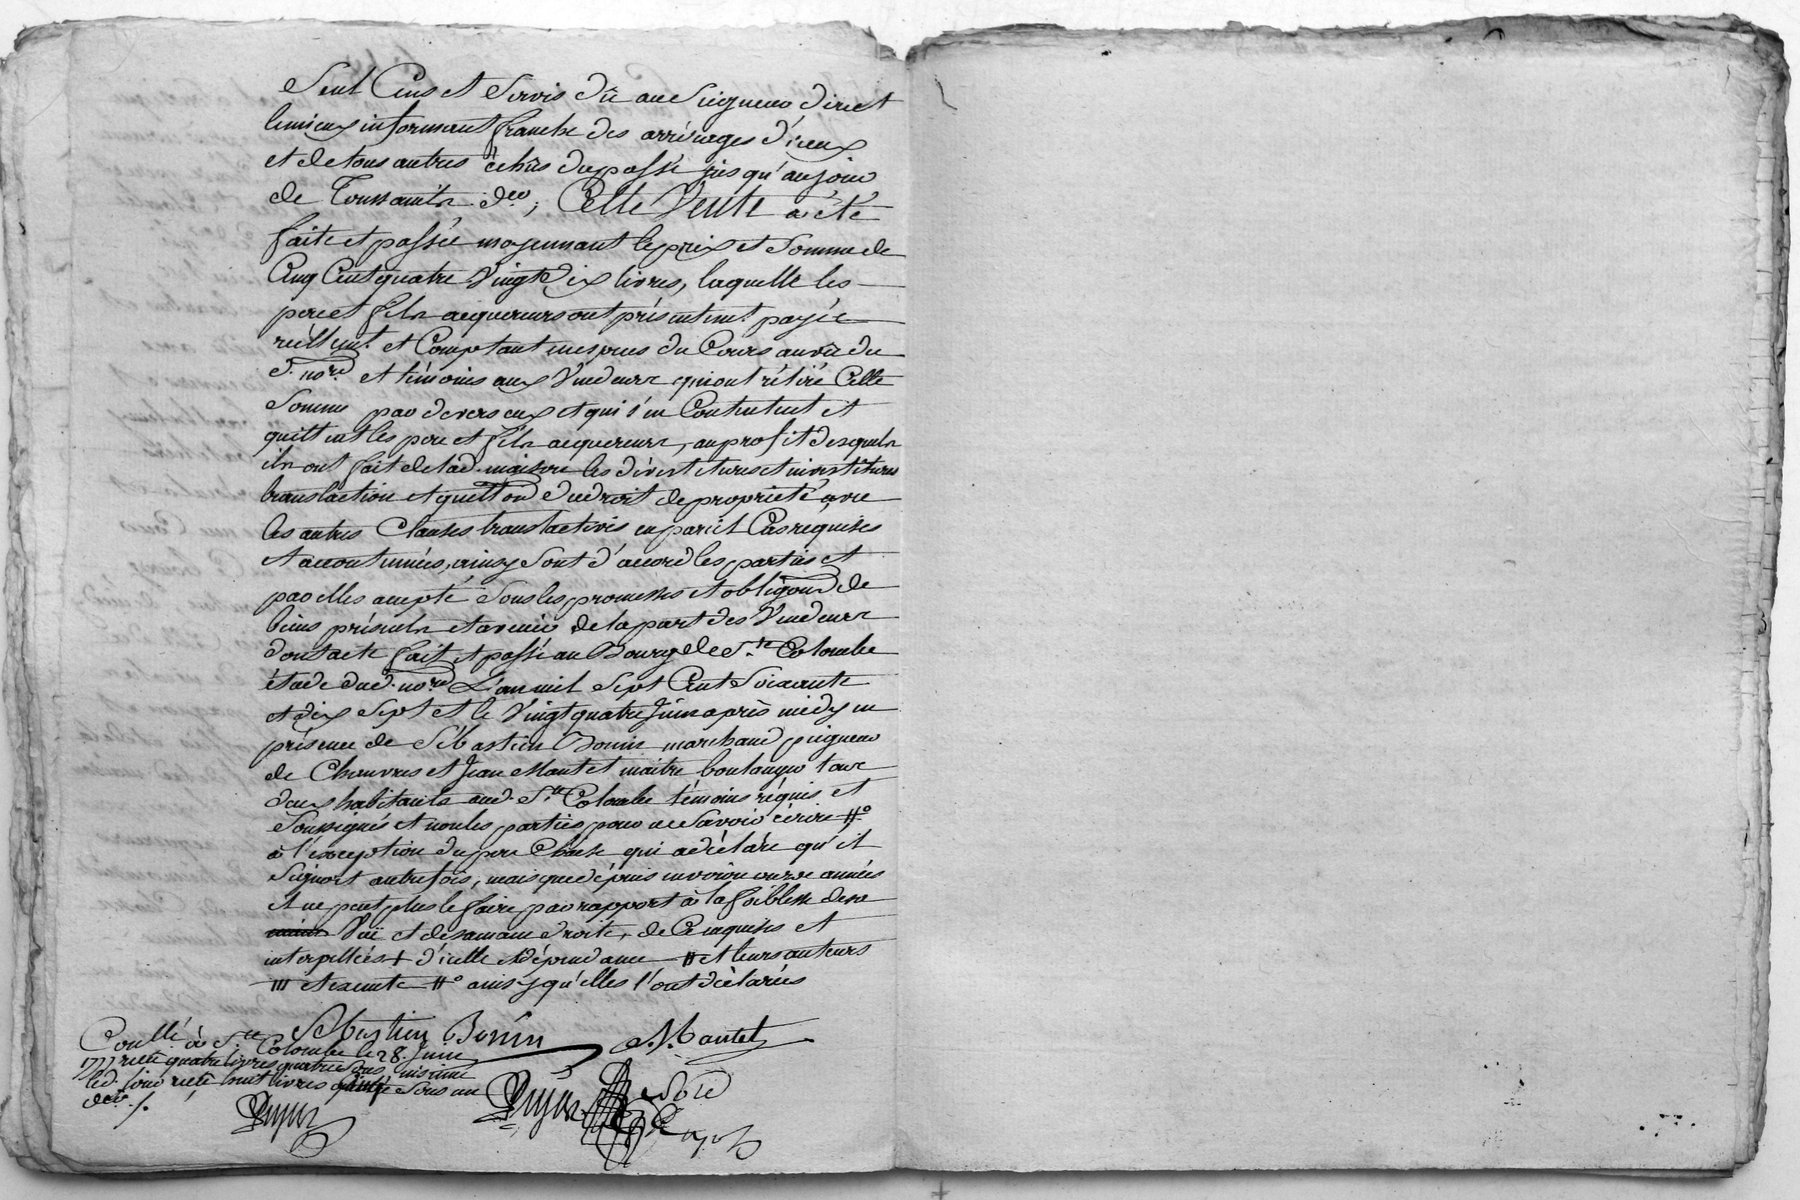 Seul Cens et Servis dû au Seigneur direct
le mieux informant franche des arrérages d'iceux
et de tous autres échûs du passé jusqu'au jour
de Toussaints der; Cette Vente a été
faite et passée moyennant le prix et Somme de
Cinq Cent quatre Vingt Dix livres, laquelle les
pere et fils acquereurs ont présentemt. payée
réellemt. et Comptant en espèces du Cours au vû du
d. nore. et témoins aux Vendeurs qui ont rétiré Cette
Somme par devers eux et qui s'en Contentent et
quittent les pere et fils acquereurs, au profit desquels
ils ont fait de lad. maison les dévestitures et investitures
translaction et quittaon du droit de proprieté avec
les autres Clauses translactives en pareil Cas requises
et accoutumées, ainsy Sont d'accord les parties et
par elles accepté Sous les promesses et obligaons de
biens présents et avenir de la part des Vendeurs
dont acte fait et passé au Bourg de Ste. Colombe
étude dud. nore. L'an mil Sept Cent Soixante
et dix Sept et le Vingt quatre Juin après midy en
présence de Sébastien Bonin marchand peigneur
de Chanvres et Jean Mantet maitre boulanger tous
deux habitants aud. Ste. Colombe témoins réquis et
Soussignés et non les parties pour ne Savoir écrire #°
à l'exception du pere Chate qui a déclaré qu'il
Signoit autrefois, mais que dépuis environ onze années
il ne peut plus le faire par rapport à la foiblesse de sa
Vuë et de sa main droite, de Ce requises et
interpellées + d'icelle et dépendance # et leurs auteurs
et exempte #° ainsy qu'elles l'ont déclarées
Sebastien Bonin J. Mantet
Conllé à Ste. Colombe le 28. Juin
1777 reçû quatre livres quatre Sous
led. jour reçû huit livres Sous un
der. /.